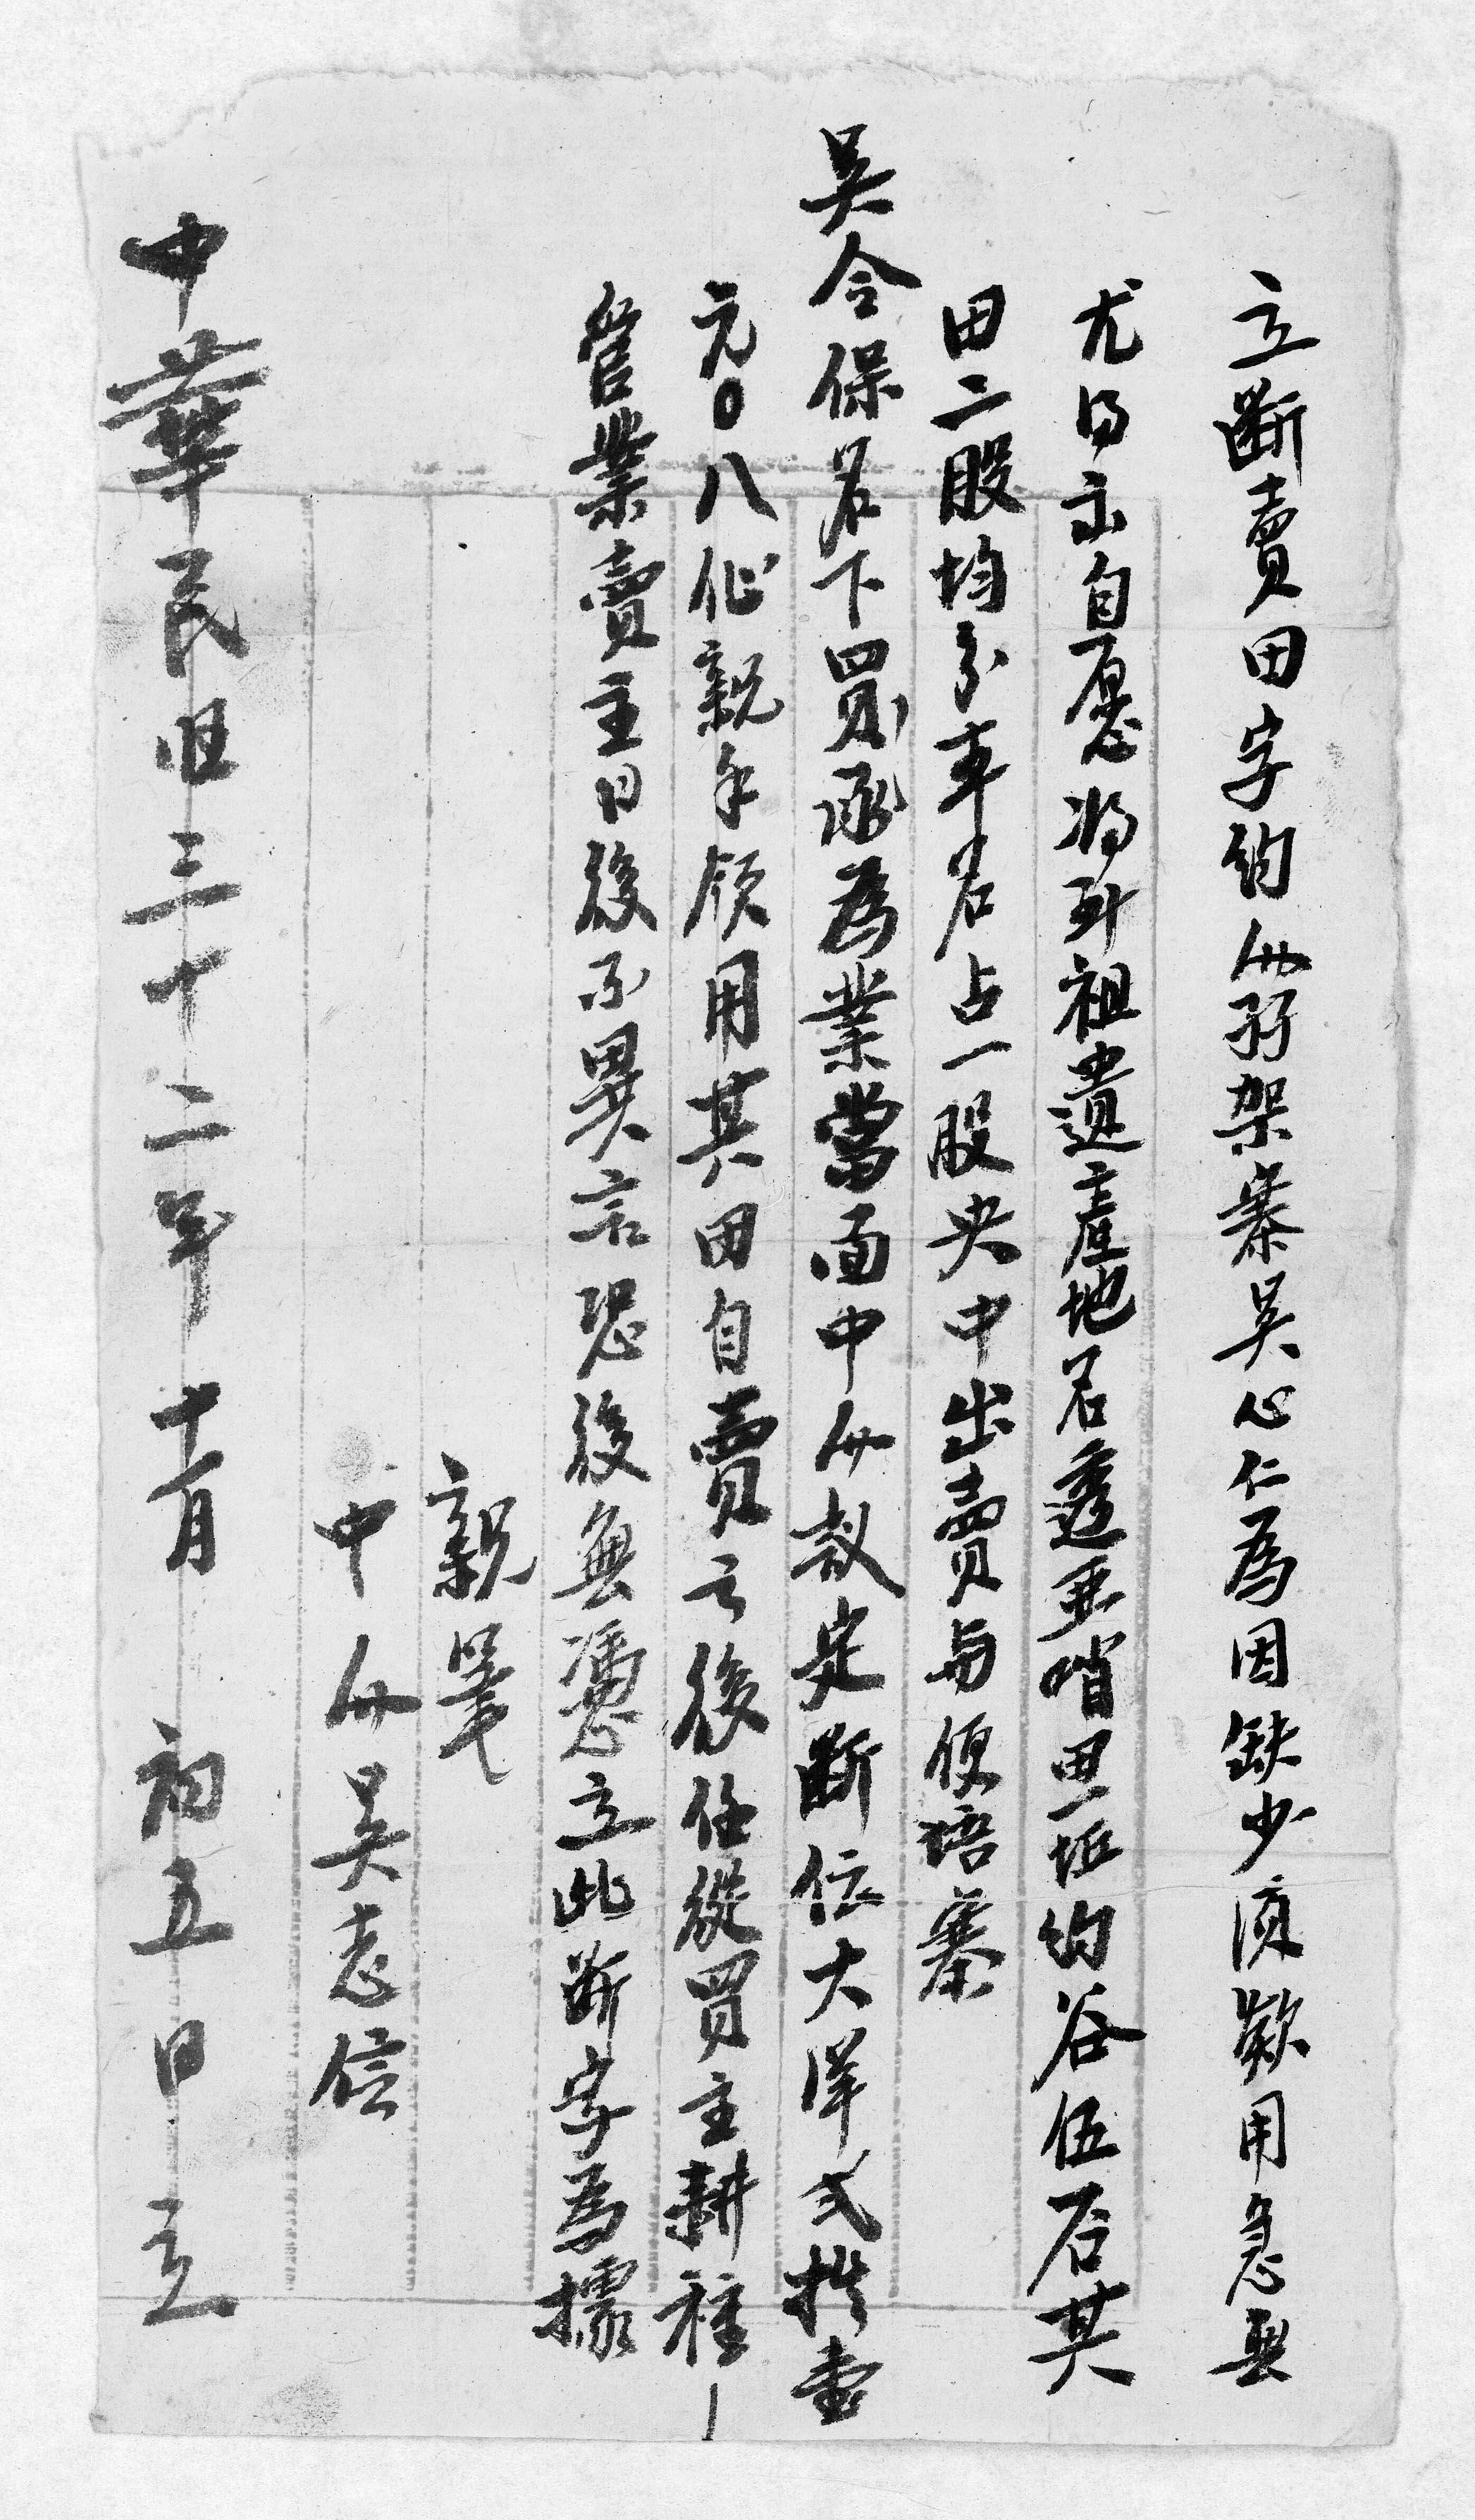 立斷賣田字約人孖架寨吳心仁為因缺少洋款用急無
尤得出自愿將到祖遺產地名透亜哨田一坵約谷伍石其
田二股均分本名占一股央中出賣與便培寨
吳令保名下買承為業當面中人叔定斷價大洋弍拾壹
元0八仙親手領用其田自賣之後任從買主耕種
管業賣主日後不異言恐後無憑立此斷字為據
親筆
中人吳志信
中華民国三十二年十一月初五日立